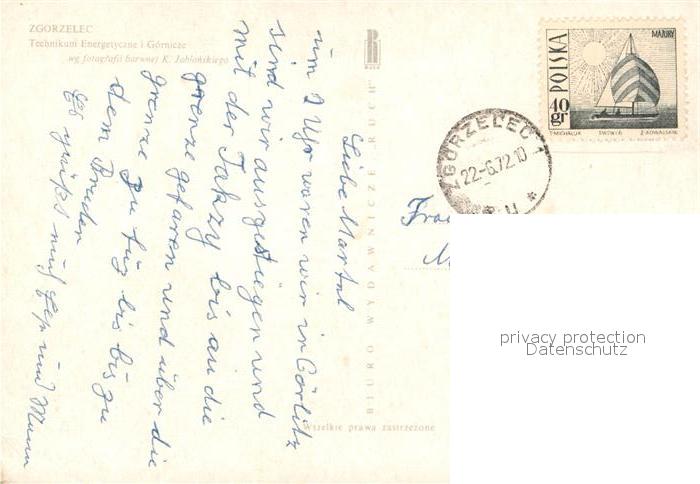 ZGORZELEC
Technikum Energetyczne i Górnicze
wg fotografii barwnej K. Jabłońskiego
RUCH
BIURO WYDAWNICZE „RUCH”
Wszelkie prawa zastrzeżone
POLSKA
MAZURY
40 gr
T. MICHALUK PWPW Z. KOWALSKI
ZGORZELEC 1
22-6.72.10
Liebe Martal
um 2 Uhr waren wir in Görlitz
sind wir ausgestiegen und
mit der Takzy bis an die
grenze gefaren und über die
grenze zu fuß bis bis zu
dem Bruder
Es grüßt und Mann
Frau
privacy protection
Datenschutz